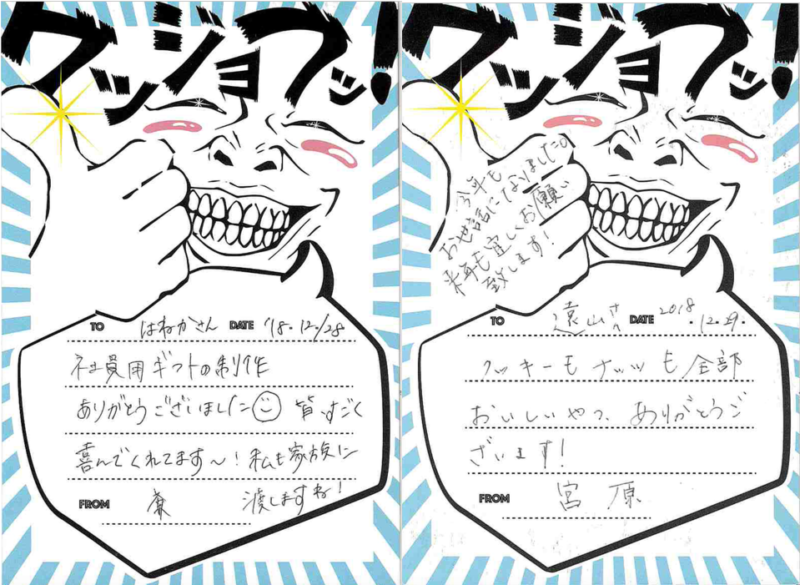 グッジョブッ!
TO はねかさん DATE '18.12/28
社員用ギフトの制作
ありがとうございました 皆すごく
喜んでくれてます〜!私も家族に
渡しますね!
FROM
グッジョブッ!
今年も
お世話になりました。
来年も宜しくお願い
致します!
TO 遠山さん DATE 2018.12.29.
クッキーもナッツも全部
おいしいやつ、ありがとうご
ざいます!
FROM 宮原